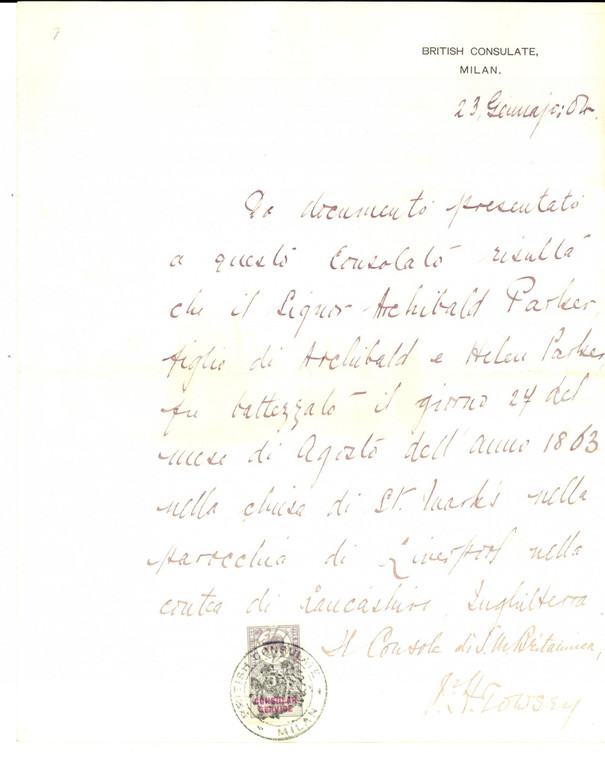 BRITISH CONSULATE,
MILAN.
23, Gennajo: 04.
Da documento presentato
a questo Consolato risulta
che il Signor Archibald Parker,
figlio di Archibald e Helen Parker,
fu battezzato il giorno 27 del
mese di Agosto dell'anno 1863
nella chiesa di St. Mark's nella
parocchia di Liverpool nella
contea di Lancashire, Inghilterra
Il Console di S. M. Britannica,
Towsey
BRITISH CONSULATE
CONSULAR
SERVICE
MILAN